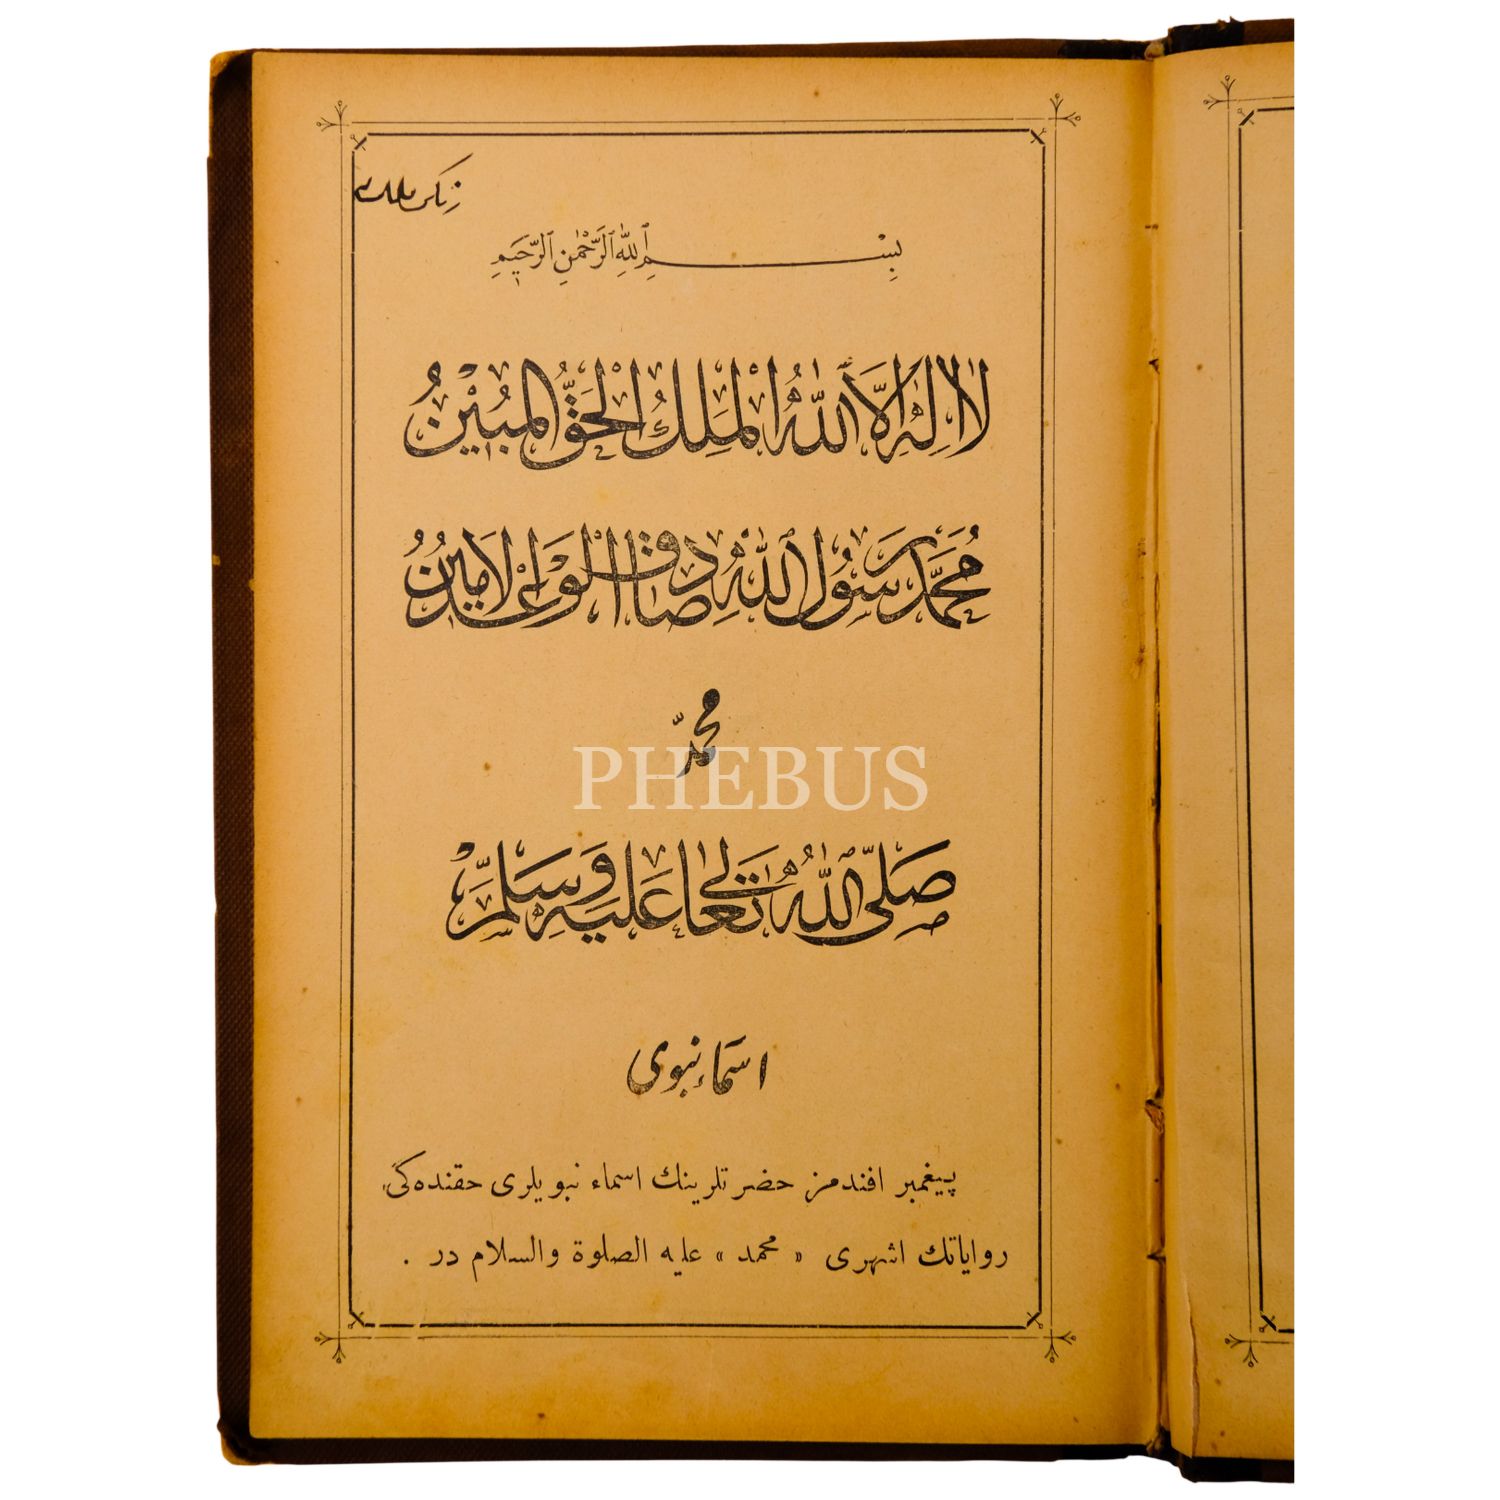 بِسْمِ ٱللّٰهِ ٱلرَّحْمٰنِ ٱلرَّحِيمِ
لَا اِلٰهَ اِلَّا اللّٰهُ الْمَلِكُ الْحَقُّ الْمُبِيْنُ
مُحَمَّدٌ رَسُولُ اللّٰهِ صَادِقُ الْوَعْدِ الْاَمِيْنُ
محمّد
PHEBUS
صَلَّى اللّٰهُ تَعَالٰى عَلَيْهِ وَسَلَّمَ
اسماء نبوی
پیغمبر افندمز حضرتلرینك اسماء نبویلری حقنده‌كی
روایاتك اشهری « محمد » علیه الصلوة والسلام در .